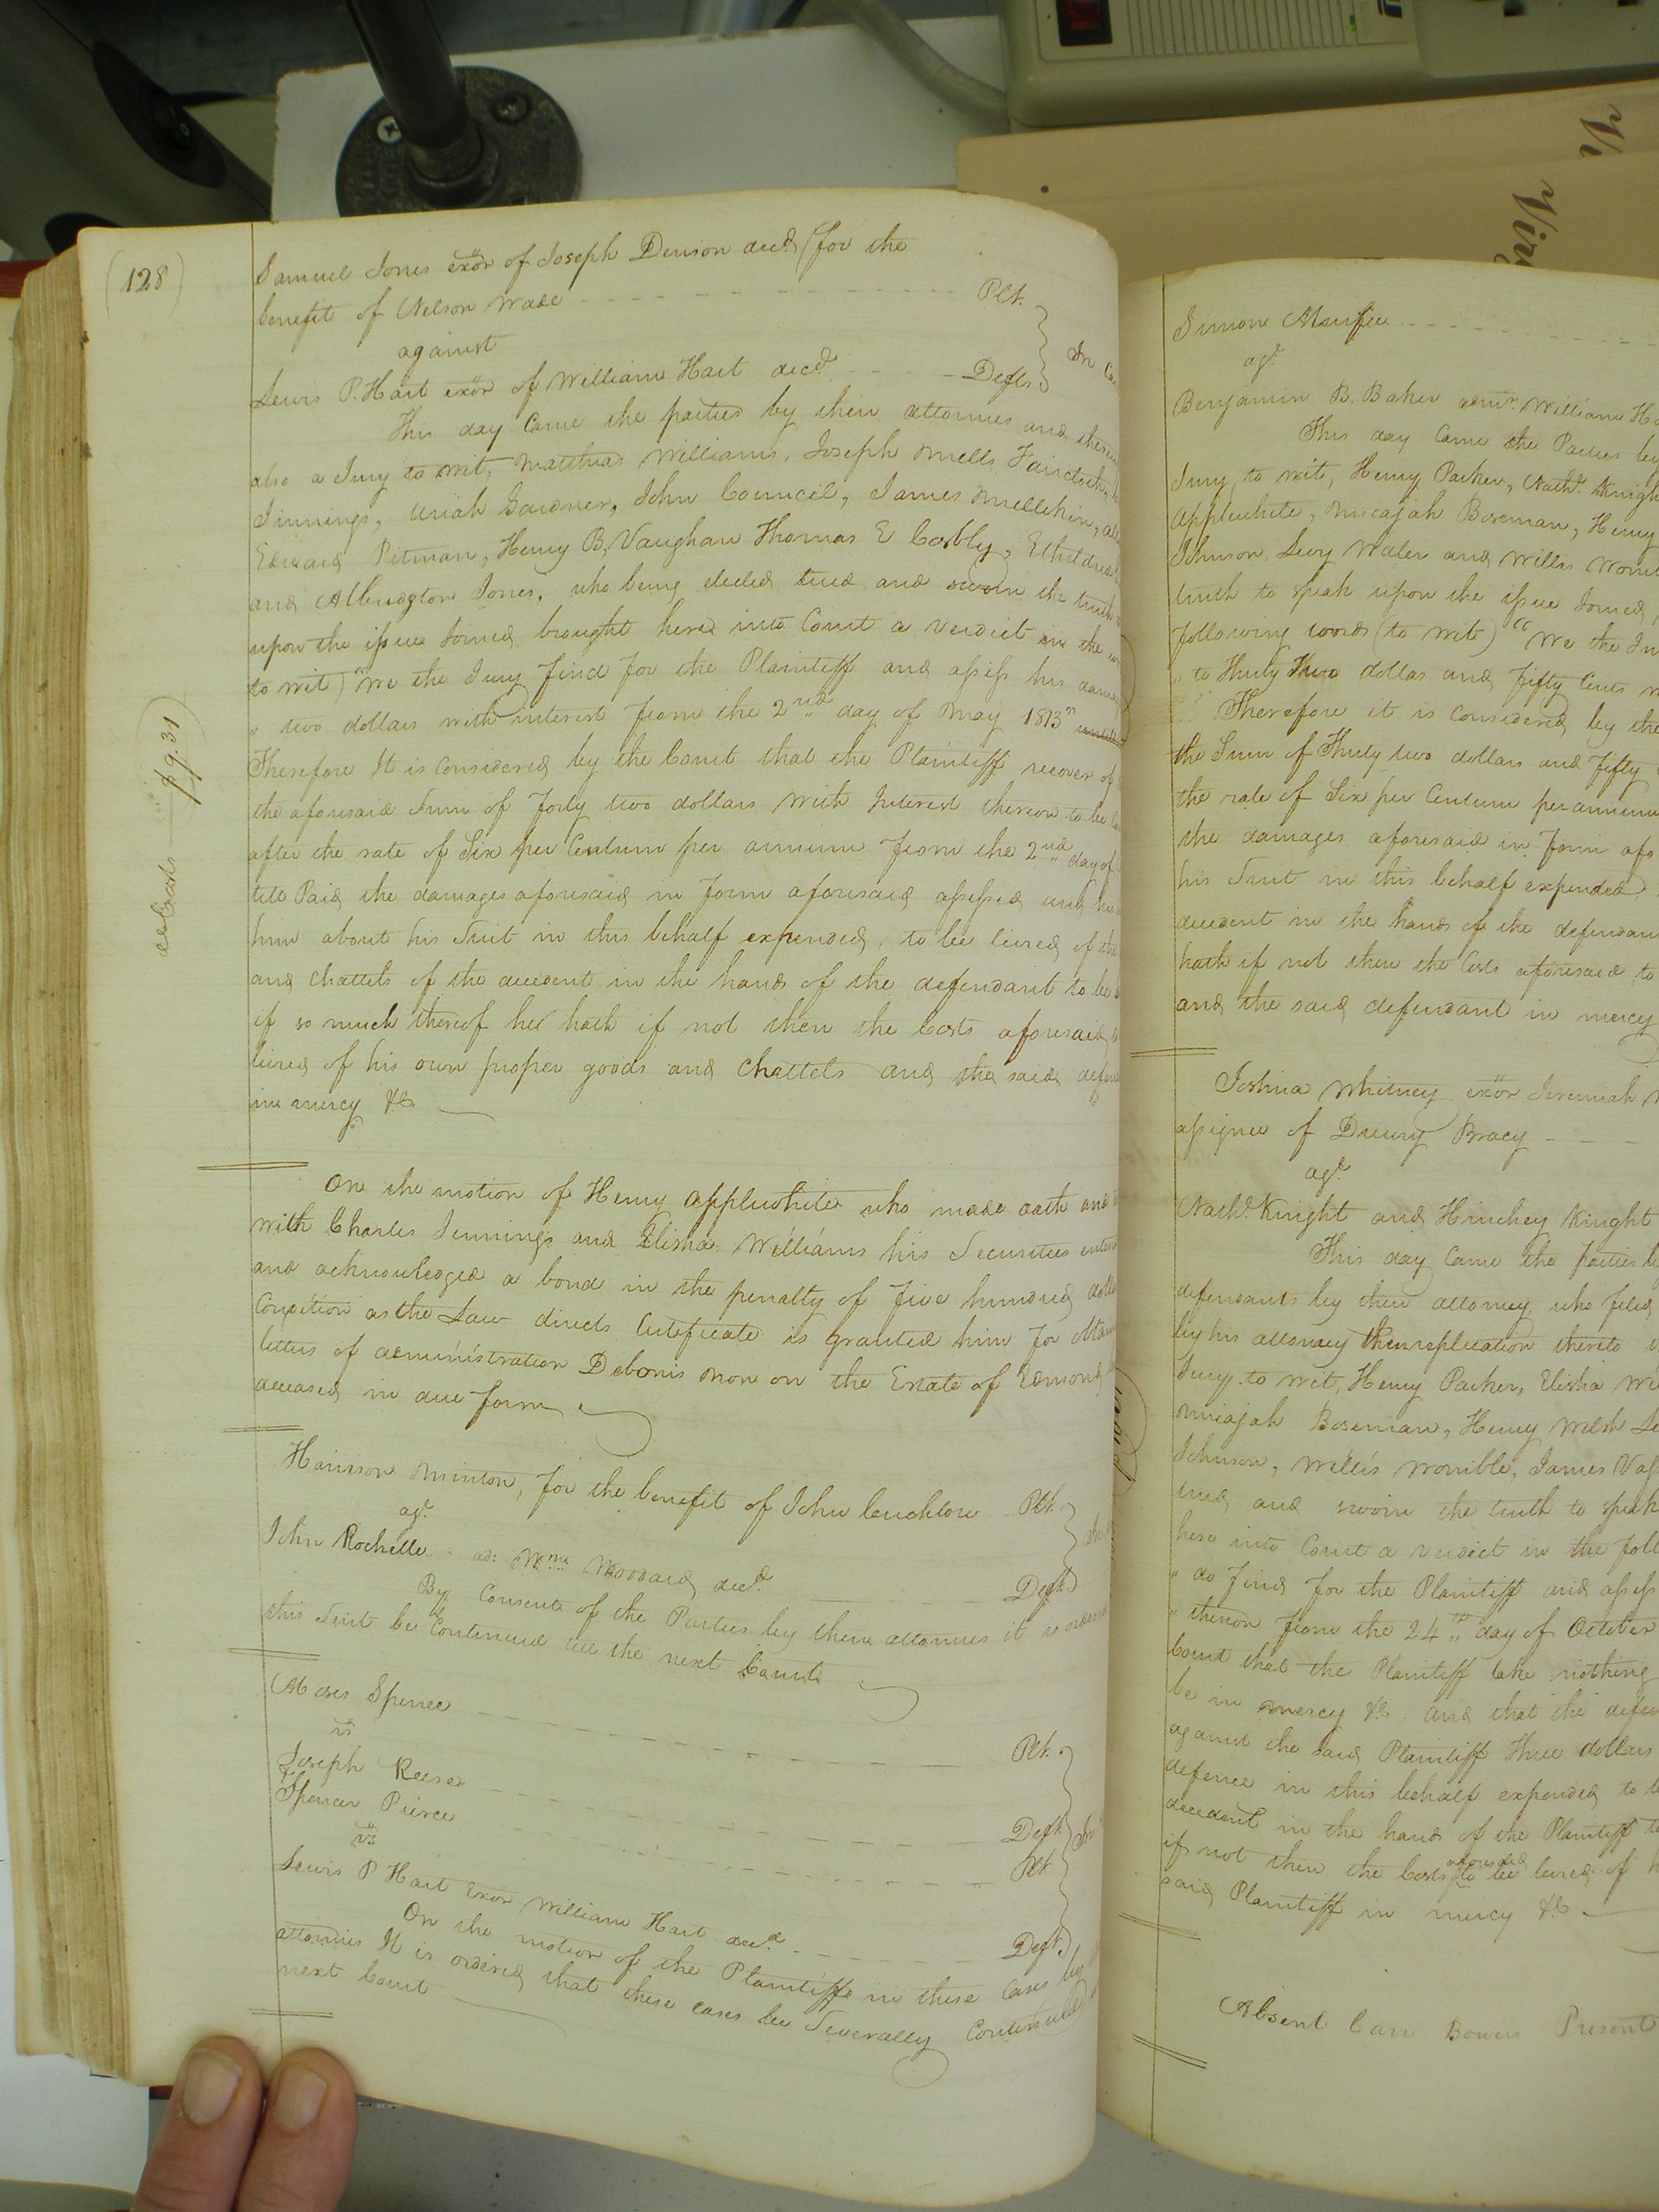 (128)
Samuel Jones exor of Joseph Denson decd (for the
benefit of Nelson Wade Plt.
against
Lewis P. Hart exor of William Hart decd Deft
This day Came the parties by their attornies and
also a Jury to wit, Matthias Williams, Joseph
Jinnings, Uriah Gardner, John Council, James
Edward Pitman, Henry B. Vaughan Thomas E
and Jones, who being elected tried and sworn the truth
upon the issue Joined, brought here into Court a verdict in the
to wit) "We the Jury find for the Plaintiff and assess his
" two dollars with interest from the 2nd day of May 1813"
Therefore It is Considered by the Court that the Plaintiff recover of
the aforesaid Sum of Forty two dollars With Interest thereon to be
after the rate of Six per Centum per annum from the 2nd day of
till Paid the damages aforesaid in form aforesaid assessed and
him about his Suit in this behalf expended, to be levied of the
and Chattels of the decedent in the hands of the defendant to be
if so much thereof he hath if not then the Costs aforesaid
levied of his own proper goods and Chattels and the said
in mercy &c
Costs $9.31
On the motion of Henry Applewhite who made oath and
with Charles Jennings and Elisha Williams his Securities
and acknowledged a bond in the penalty of Five hundred
Condition as the Law directs Certificate is granted him for
letters of administration Debonis non on the Estate of Edmond
deceased in due form
Harrison Minton, for the benefit of John Plt.
agt.
John Rochelle ad: Wm Woodard decd. Deft
By Consent of the Parties by their attornies it is
this Suit be Continued till the next Court
Moses Spence Plt.
vs
Joseph Reese Deft
Spencer Pierce Plt
vs
Lewis P Hart Exor William Hart decd. Deft.
On the motion of the Plaintiffs in these Cases by
attornies It is ordered that these cases be Severally Continued
next Court
Simon
agt.
Benjamin B. Baker admr. William
This day Came the Parties by
Jury, to wit, Henry Parker, Nathd.
Applewhite, Micajah Boseman, Henry
Johnson, Levy Waller and Willis
truth to speak upon the issue Joined,
following words (to wit) "We the
" to Thirty two dollars and fifty Cents
Therefore it is Considered by the
the Sum of Thirty two dollars and fifty
the rate of Six per Centum per annum
the damages aforesaid in form
his Suit in this behalf expended
decedent in the hands of the
hath if not then the Costs aforesaid to
and the said defendant in mercy
Joshua Whitney exor Jeremiah
assignee of Drewry Bracy
agt.
Nathd. Knight and Hinchey Knight
This day Came the Parties
defendants by their attorney who filed
by his attorney replication thereto
Jury to wit, Henry Parker, Elisha
Micajah Boseman, Henry Welsh
Johnson, Willis Womble, James
tried and sworn the truth to speak
here into Court a verdict in the
" do find for the Plaintiff and assess
" thereon from the 24th day of October
Court that the Plaintiff take nothing
be in mercy &c. and that the
against the said Plaintiff three dollars
defence in this behalf expended to
decedent in the hands of the Plaintiff
if not then the Costs aforesaid to be levied of
said Plaintiff in mercy &c
Absent Carr Bowers Present